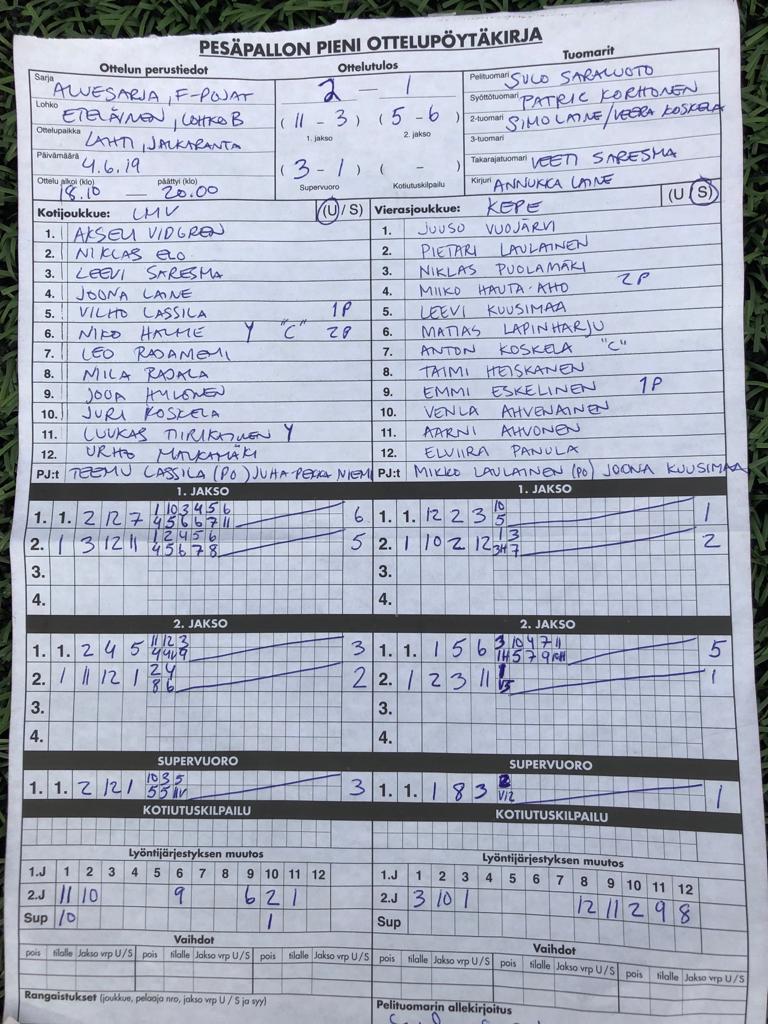 PESÄPALLON PIENI OTTELUPÖYTÄKIRJA
Ottelun perustiedot
Sarja ALUESARJA, F-POJAT
Lohko ETELÄINEN, LOHKO B
Ottelupaikka LAHTI, JALKARANTA
Päivämäärä 4.6.19
Ottelu alkoi (klo) 18.10 — päättyi (klo) 20.00
Ottelutulos
2 — 1
(11 - 3) (5 - 6)
1. jakso 2. jakso
(3 - 1) ( - )
Supervuoro Kotiutuskilpailu
Tuomarit
Pelituomari SULO SARALUOTO
Syöttötuomari PATRIC KORHONEN
2-tuomari SIMO LAINE/VEERA KOSKELA
3-tuomari
Takarajatuomari VEETI SARESMA
Kirjuri ANNUKKA LAINE
Kotijoukkue: LMV (U / S)
1. AKSELI VIDGREN
2. NIKLAS ELO
3. LEEVI SARESMA
4. JOONA LAINE
5. VILHO LASSILA 1P
6. NIKO HALME Y "C" 2P
7. LEO RADAMEMI
8. MILA RAJALA
9. JOOA HYLONEN
10. JURI KOSKELA
11. LUUKAS TIIRIKAINEN Y
12. URHO MALKAMÄKI
PJ:t TEEMU LASSILA (PO) JUHA-PEKKA NIEMI
Vierasjoukkue: KEPE (U S)
1. JUUSO VUOJÄRVI
2. PIETARI LAULAINEN
3. NIKLAS PUOLAMÄKI
4. MIIKO HAUTA-AHO 2P
5. LEEVI KUUSIMAA
6. MATIAS LAPINHARJU
7. ANTON KOSKELA "C"
8. TAIMI HEISKANEN
9. EMMI ESKELINEN 1P
10. VENLA AHVENAINEN
11. AARNI AHVONEN
12. ELVIIRA PANULA
PJ:t MIKKO LAULAINEN (PO) JOONA KUUSIMAA
1. JAKSO
1. 1. 2 12 7 1 10 3 4 5 6 6
4 5 6 6 7 11
2. 1 3 12 11 1 2 4 5 6 5
4 5 6 7 8
3.
4.
1. JAKSO
1. 1. 12 2 3 10 1
5
2. 1 10 2 12 1 3 2
3H 7
3.
4.
2. JAKSO
1. 1. 2 4 5 11 12 3 3
2. 1 11 12 1 2 4 2
8 6
3.
4.
2. JAKSO
1. 1. 1 5 6 3 10 4 7 11 5
1H 5 7 9
2. 1 2 3 11 1
3.
4.
SUPERVUORO
1. 1. 2 12 1 10 3 5 3
5 5
SUPERVUORO
1. 1. 1 8 3 2 1
V12
KOTIUTUSKILPAILU
KOTIUTUSKILPAILU
Lyöntijärjestyksen muutos
1.J 1 2 3 4 5 6 7 8 9 10 11 12
2.J 11 10 9 6 2 1
Sup 10 1
Lyöntijärjestyksen muutos
1.J 1 2 3 4 5 6 7 8 9 10 11 12
2.J 3 10 1 12 11 2 9 8
Sup
Vaihdot
pois tilalle Jakso vrp U / S pois tilalle Jakso vrp U / S pois tilalle Jakso vrp U / S
Vaihdot
pois tilalle Jakso vrp U / S pois tilalle Jakso vrp U / S pois tilalle Jakso vrp U / S
Rangaistukset (joukkue, pelaaja nro, jakso vrp U / S ja syy)
Pelituomarin allekirjoitus